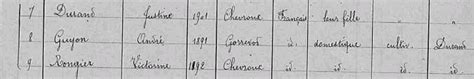 7 Durand Justine 1901 Chevroux Français leur fille " "
8 Guyon André 1891 Gorrevod id. domestique cultiv. Durand
9 Rongier Victorine 1892 Chevroux id. id. id. id.